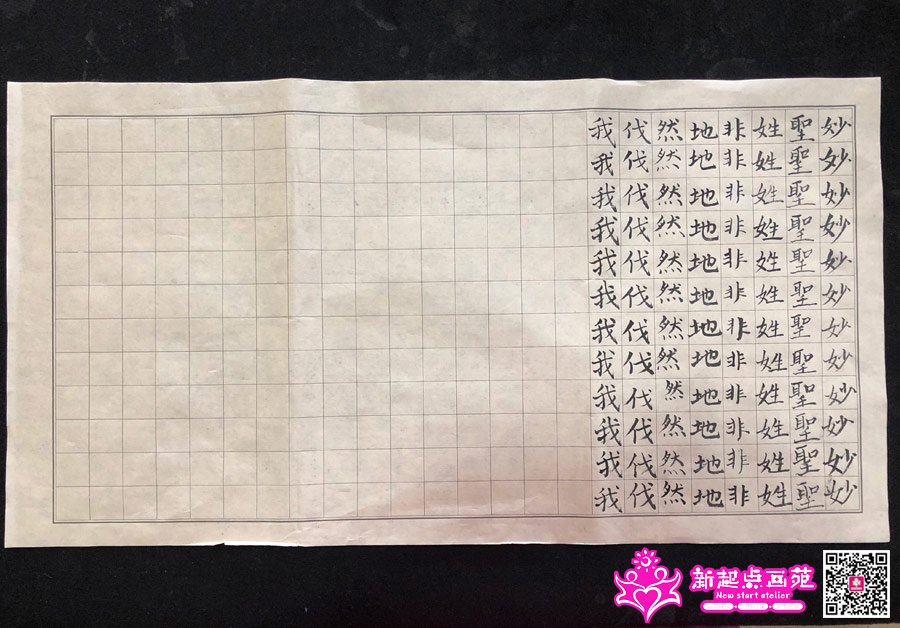 妙妙妙妙妙妙妙妙妙妙妙妙
聖聖聖聖聖聖聖聖聖聖聖聖
姓姓姓姓姓姓姓姓姓姓姓姓
非非非非非非非非非非非非
地地地地地地地地地地地地
然然然然然然然然然然然然
伐伐伐伐伐伐伐伐伐伐伐伐
我我我我我我我我我我我我
新起点画苑
New start atelier